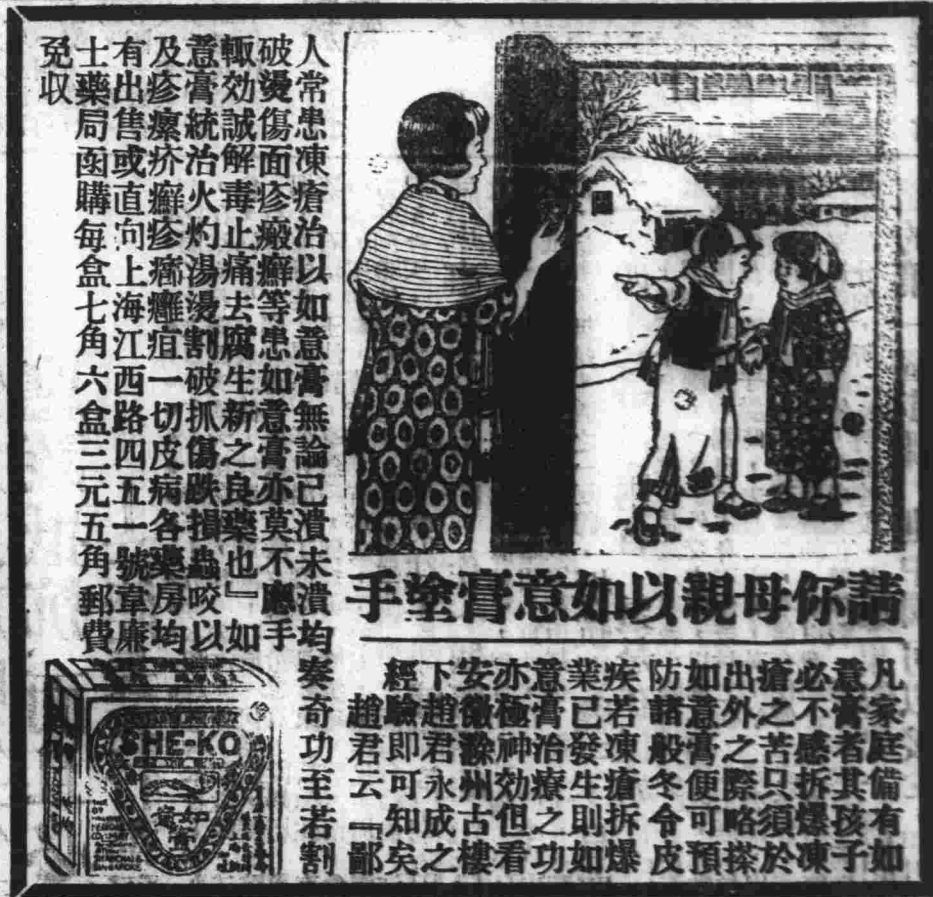 請你母親以如意膏塗手
凡家庭備有如
意膏者其孩子
必不感拆爆凍
瘡之苦只須於
出外之際略搽
如意膏便可預
防諸般冬令皮
疾若凍瘡拆爆
業已發生則如
意膏治療之功
亦極神効但看
安徽滁州古樓
下趙君永成之
經驗即可知矣
趙君云『鄙
人常患凍瘡治以如意膏無論已潰未潰均奏奇功至若割
破燙傷面疹癜癬等患如意膏亦莫不應手
輒効誠解毒止痛去腐生新之良藥也』如
意膏統治火灼湯燙割破抓傷跌損蟲咬以
及疹瘰疥癬疹癤癰疽一切皮病各藥房均
有出售或直向上海江西路四五一號韋廉
士藥局函購每盒七角六盒三元五角郵費
免收
SHE-KO
如意膏